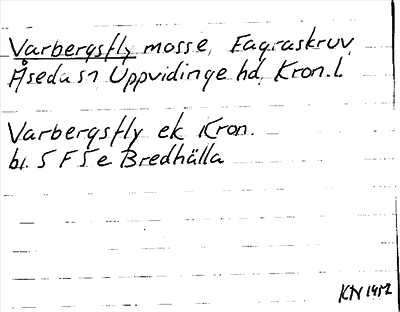 Varbergsfly mosse, Fagraskruv,
Åseda sn Uppvidinge hd, Kron. l.
Varbergsfly ek Kron.
bl. 5 F 5 e Bredhälla
KN 1952